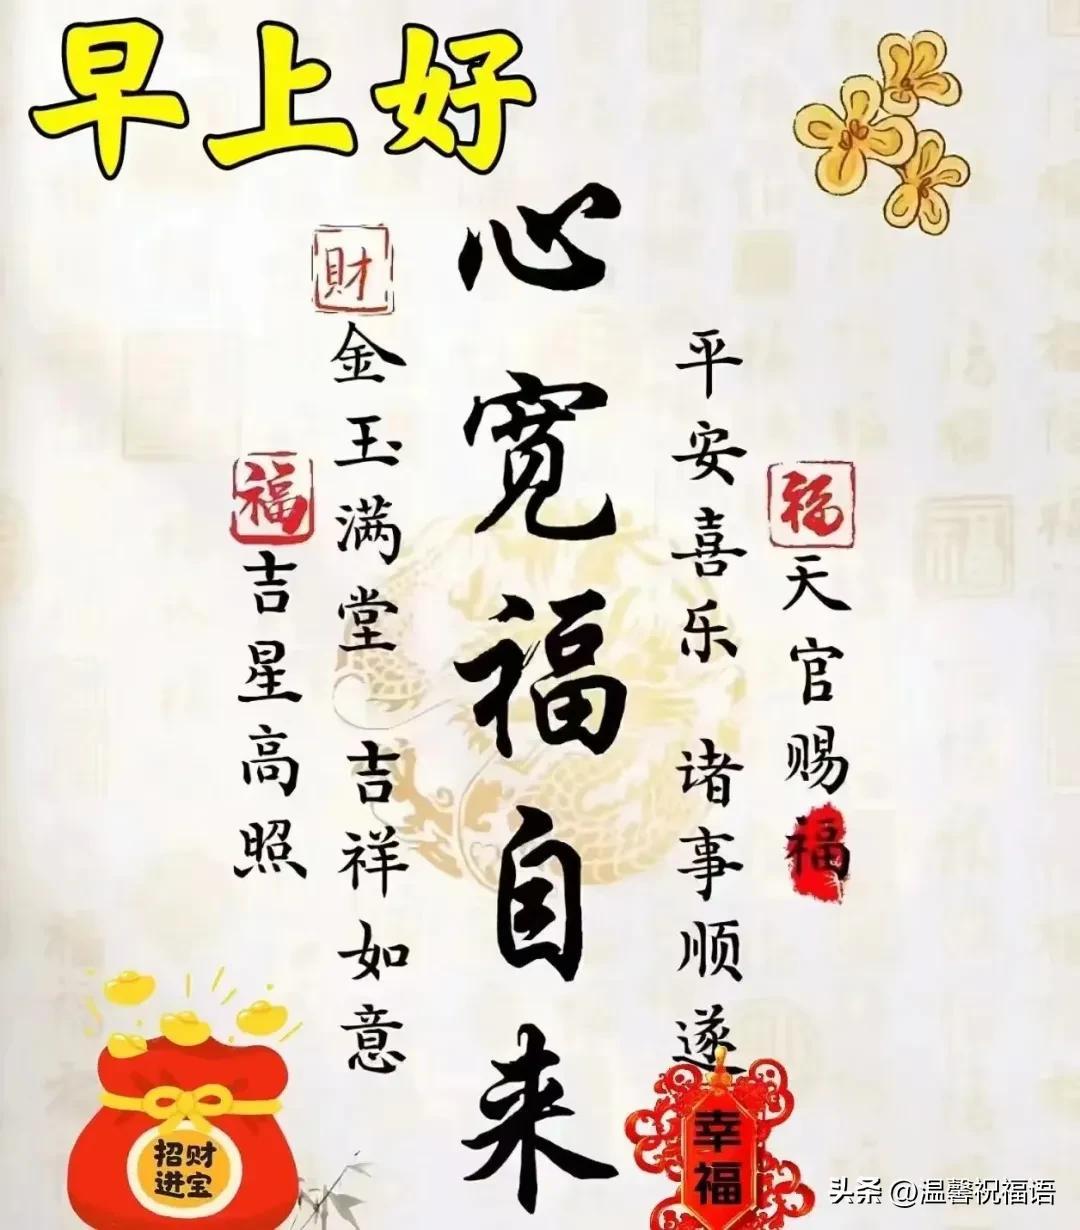 早上好
福
天官赐福
平安喜乐 诸事顺遂
心宽福自来
財
金玉满堂 吉祥如意
福
吉星高照
招财
进宝
幸福
头条 @温馨祝福语